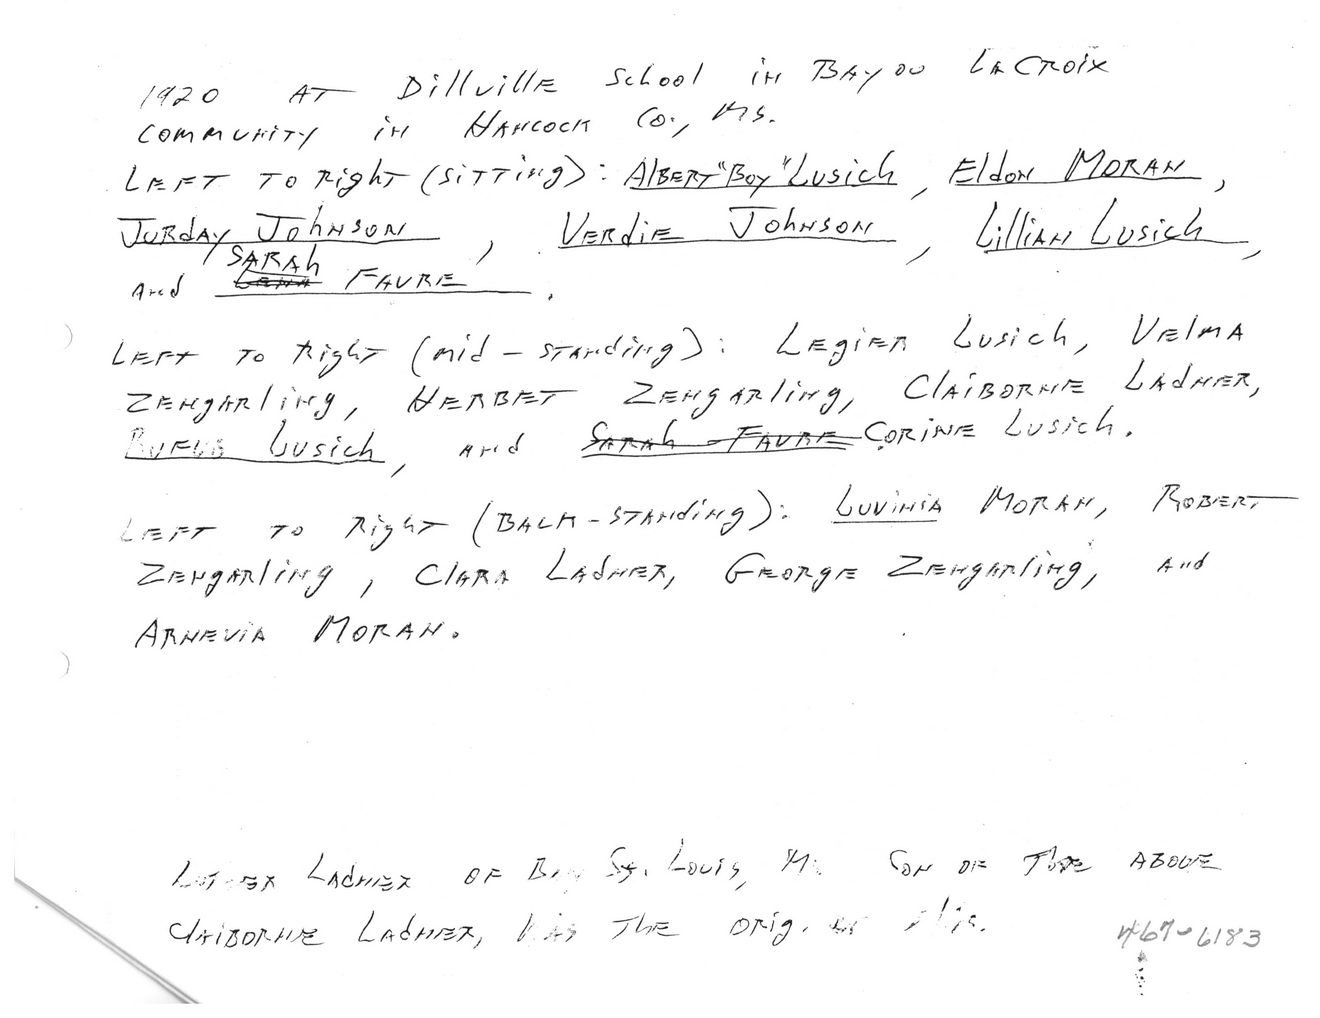 1920 AT Dillville School in BAYou LACROix
COMMUNITY in HANCOCK Co., Ms.
LEFT TO Right (SiTTing): AlBERT "BOY" Lusich, Eldon MORAN,
JURdAY JohNSON, VERdiE JohNSON, LilliAN Lusich,
SARAh
And LENA FAURE.
LEFT TO Right (mid - STANding): LEgiER Lusich, VElMA
ZENgARling, HERBET ZENgARling, ClAiBORNE LAdNER,
RuFus Lusich, And SARAh FAURE CORINE Lusich.
LEFT TO Right (BACK - STANding): LuviNiA MORAN, ROBERT
ZENgARling, ClARA LAdNER, GEORGE ZENgARling, And
ARNEViA MORAN.
LAdNER OF BAY ST. Louis, Son OF ThE ABOVE
ClAiBORNE LAdNER, hAS ThE ORig.
467-6183